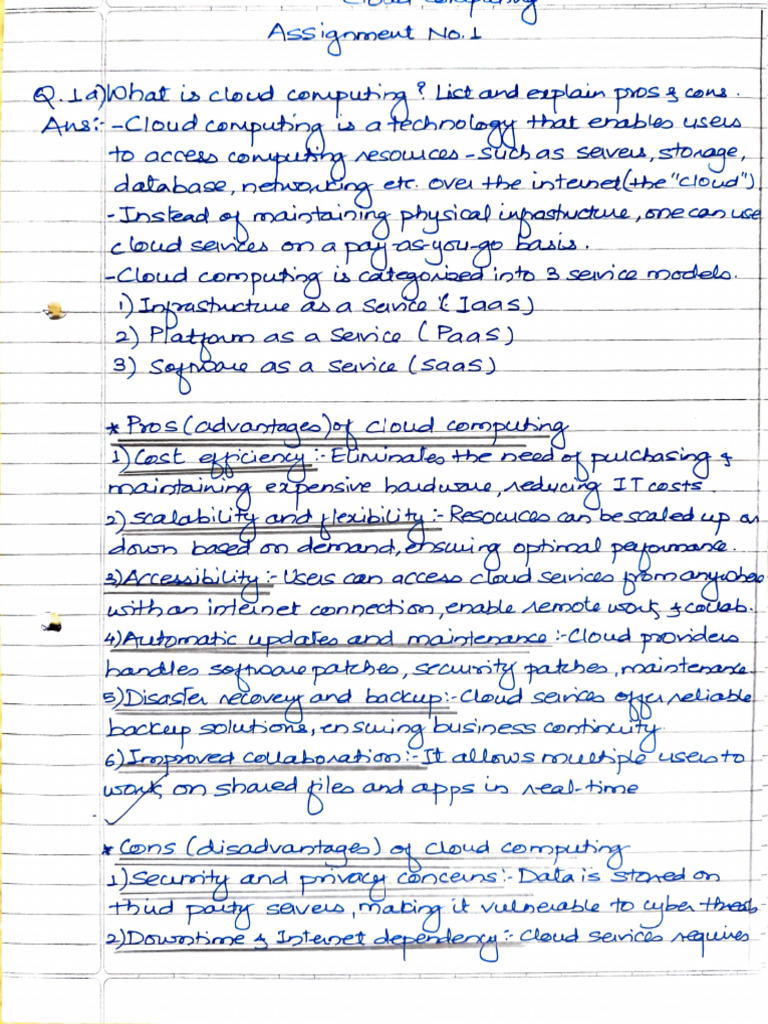 Cloud Computing
Assignment No.1
Q.1a)What is cloud computing? List and explain pros & cons.
Ans:- -Cloud computing is a technology that enables users
to access computing resources - such as servers, storage,
database, networking etc. over the internet (the "cloud")
-Instead of maintaining physical infrastructure, one can use
cloud services on a pay-as-you-go basis.
-Cloud computing is categorized into 3 service models.
1) Infrastructure as a service (IaaS)
2) Platform as a Service (PaaS)
3) Software as a service (SaaS)
* Pros (advantages) of cloud computing
1) Cost efficiency :- Eliminates the need of purchasing &
maintaining expensive hardware, reducing IT costs.
2) Scalability and flexibility :- Resources can be scaled up or
down based on demand, ensuring optimal performance.
3) Accessibility :- Users can access cloud services from anywhere
with an internet connection, enable remote work & collab.
4) Automatic updates and maintenance :- Cloud providers
handles software patches, security patches, maintenance
5) Disaster recovery and backup:- Cloud services offer reliable
backup solutions, ensuring business continuity
6) Improved collaboration :- It allows multiple users to
work on shared files and apps in real-time
* Cons (disadvantages) of cloud computing
1) Security and privacy concerns :- Data is stored on
third party servers, making it vulnerable to cyber threats
2) Downtime & Internet dependency :- Cloud services requires